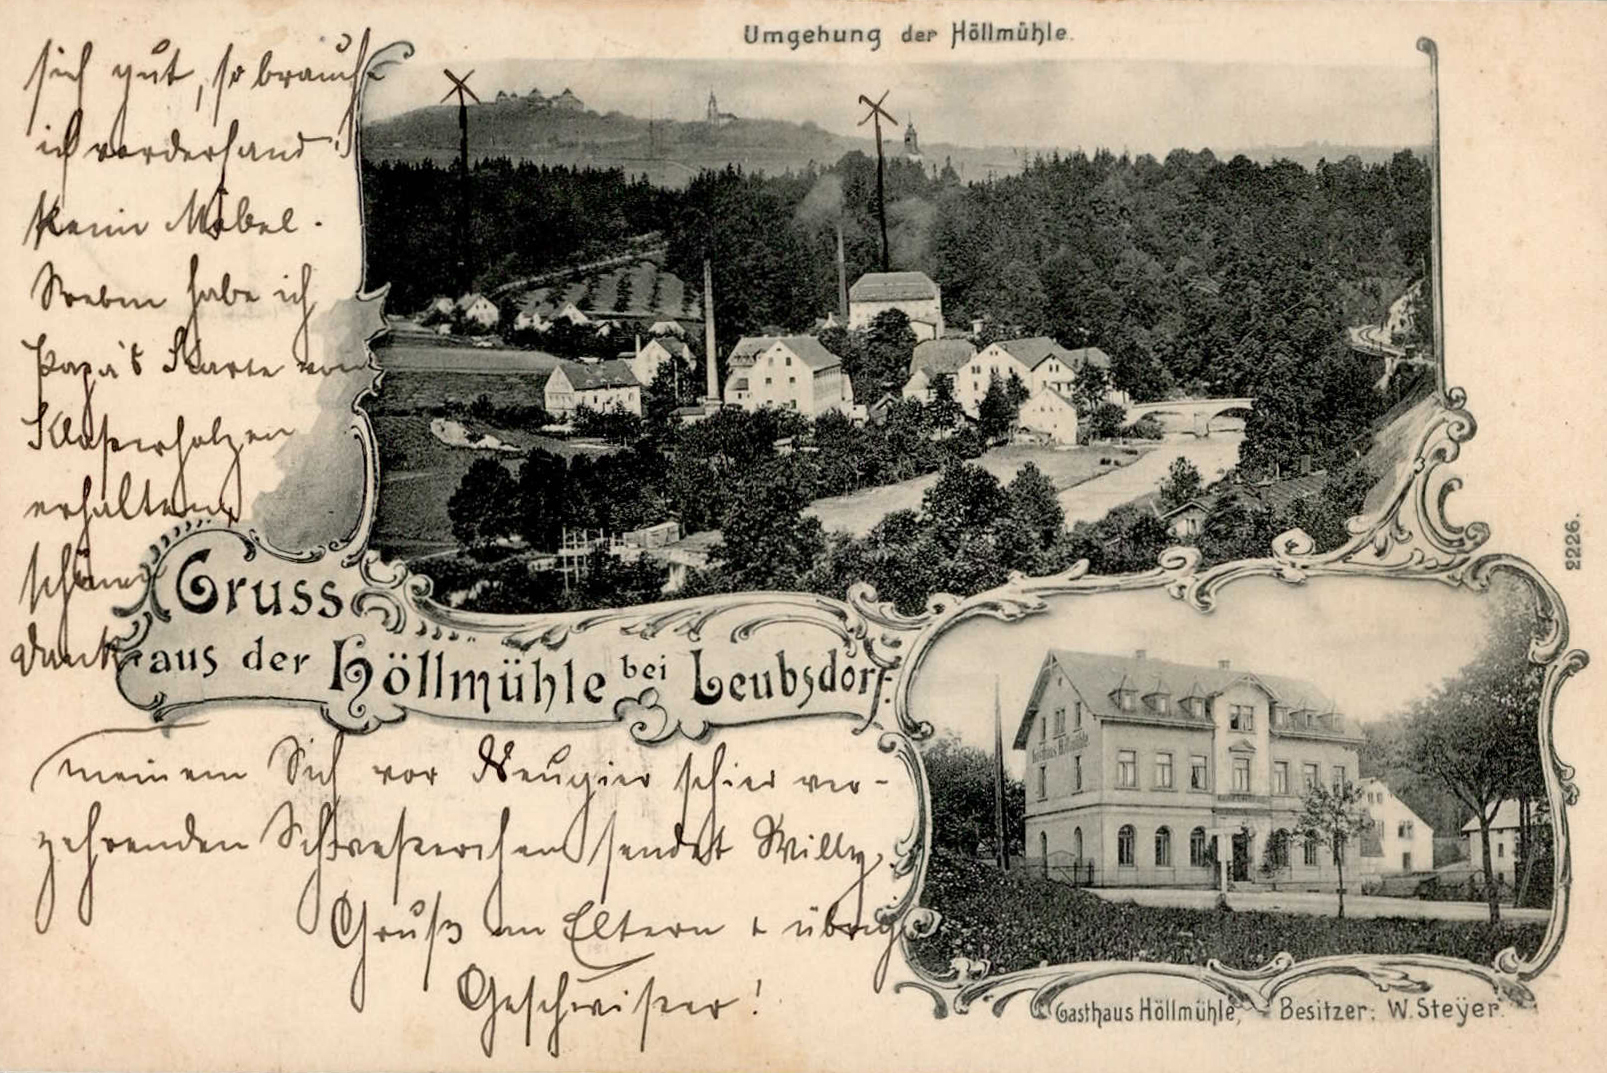 Umgehung der Höllmühle.
sich gut, so brauche
ich vorderhand
keine Möbel.
Soeben habe ich
Papa's Karte von
erhalten,
schönen
Dank
Gruss
aus der Höllmühle bei Leubsdorf.
meinem Sich vor Neugier schier ver-
zehrenden Schwesterchen sendet Willy.
Gruß an Eltern + übrig
Geschwister!
2226.
Gasthaus Höllmühle
Gasthaus Höllmühle, Besitzer: W. Steÿer.